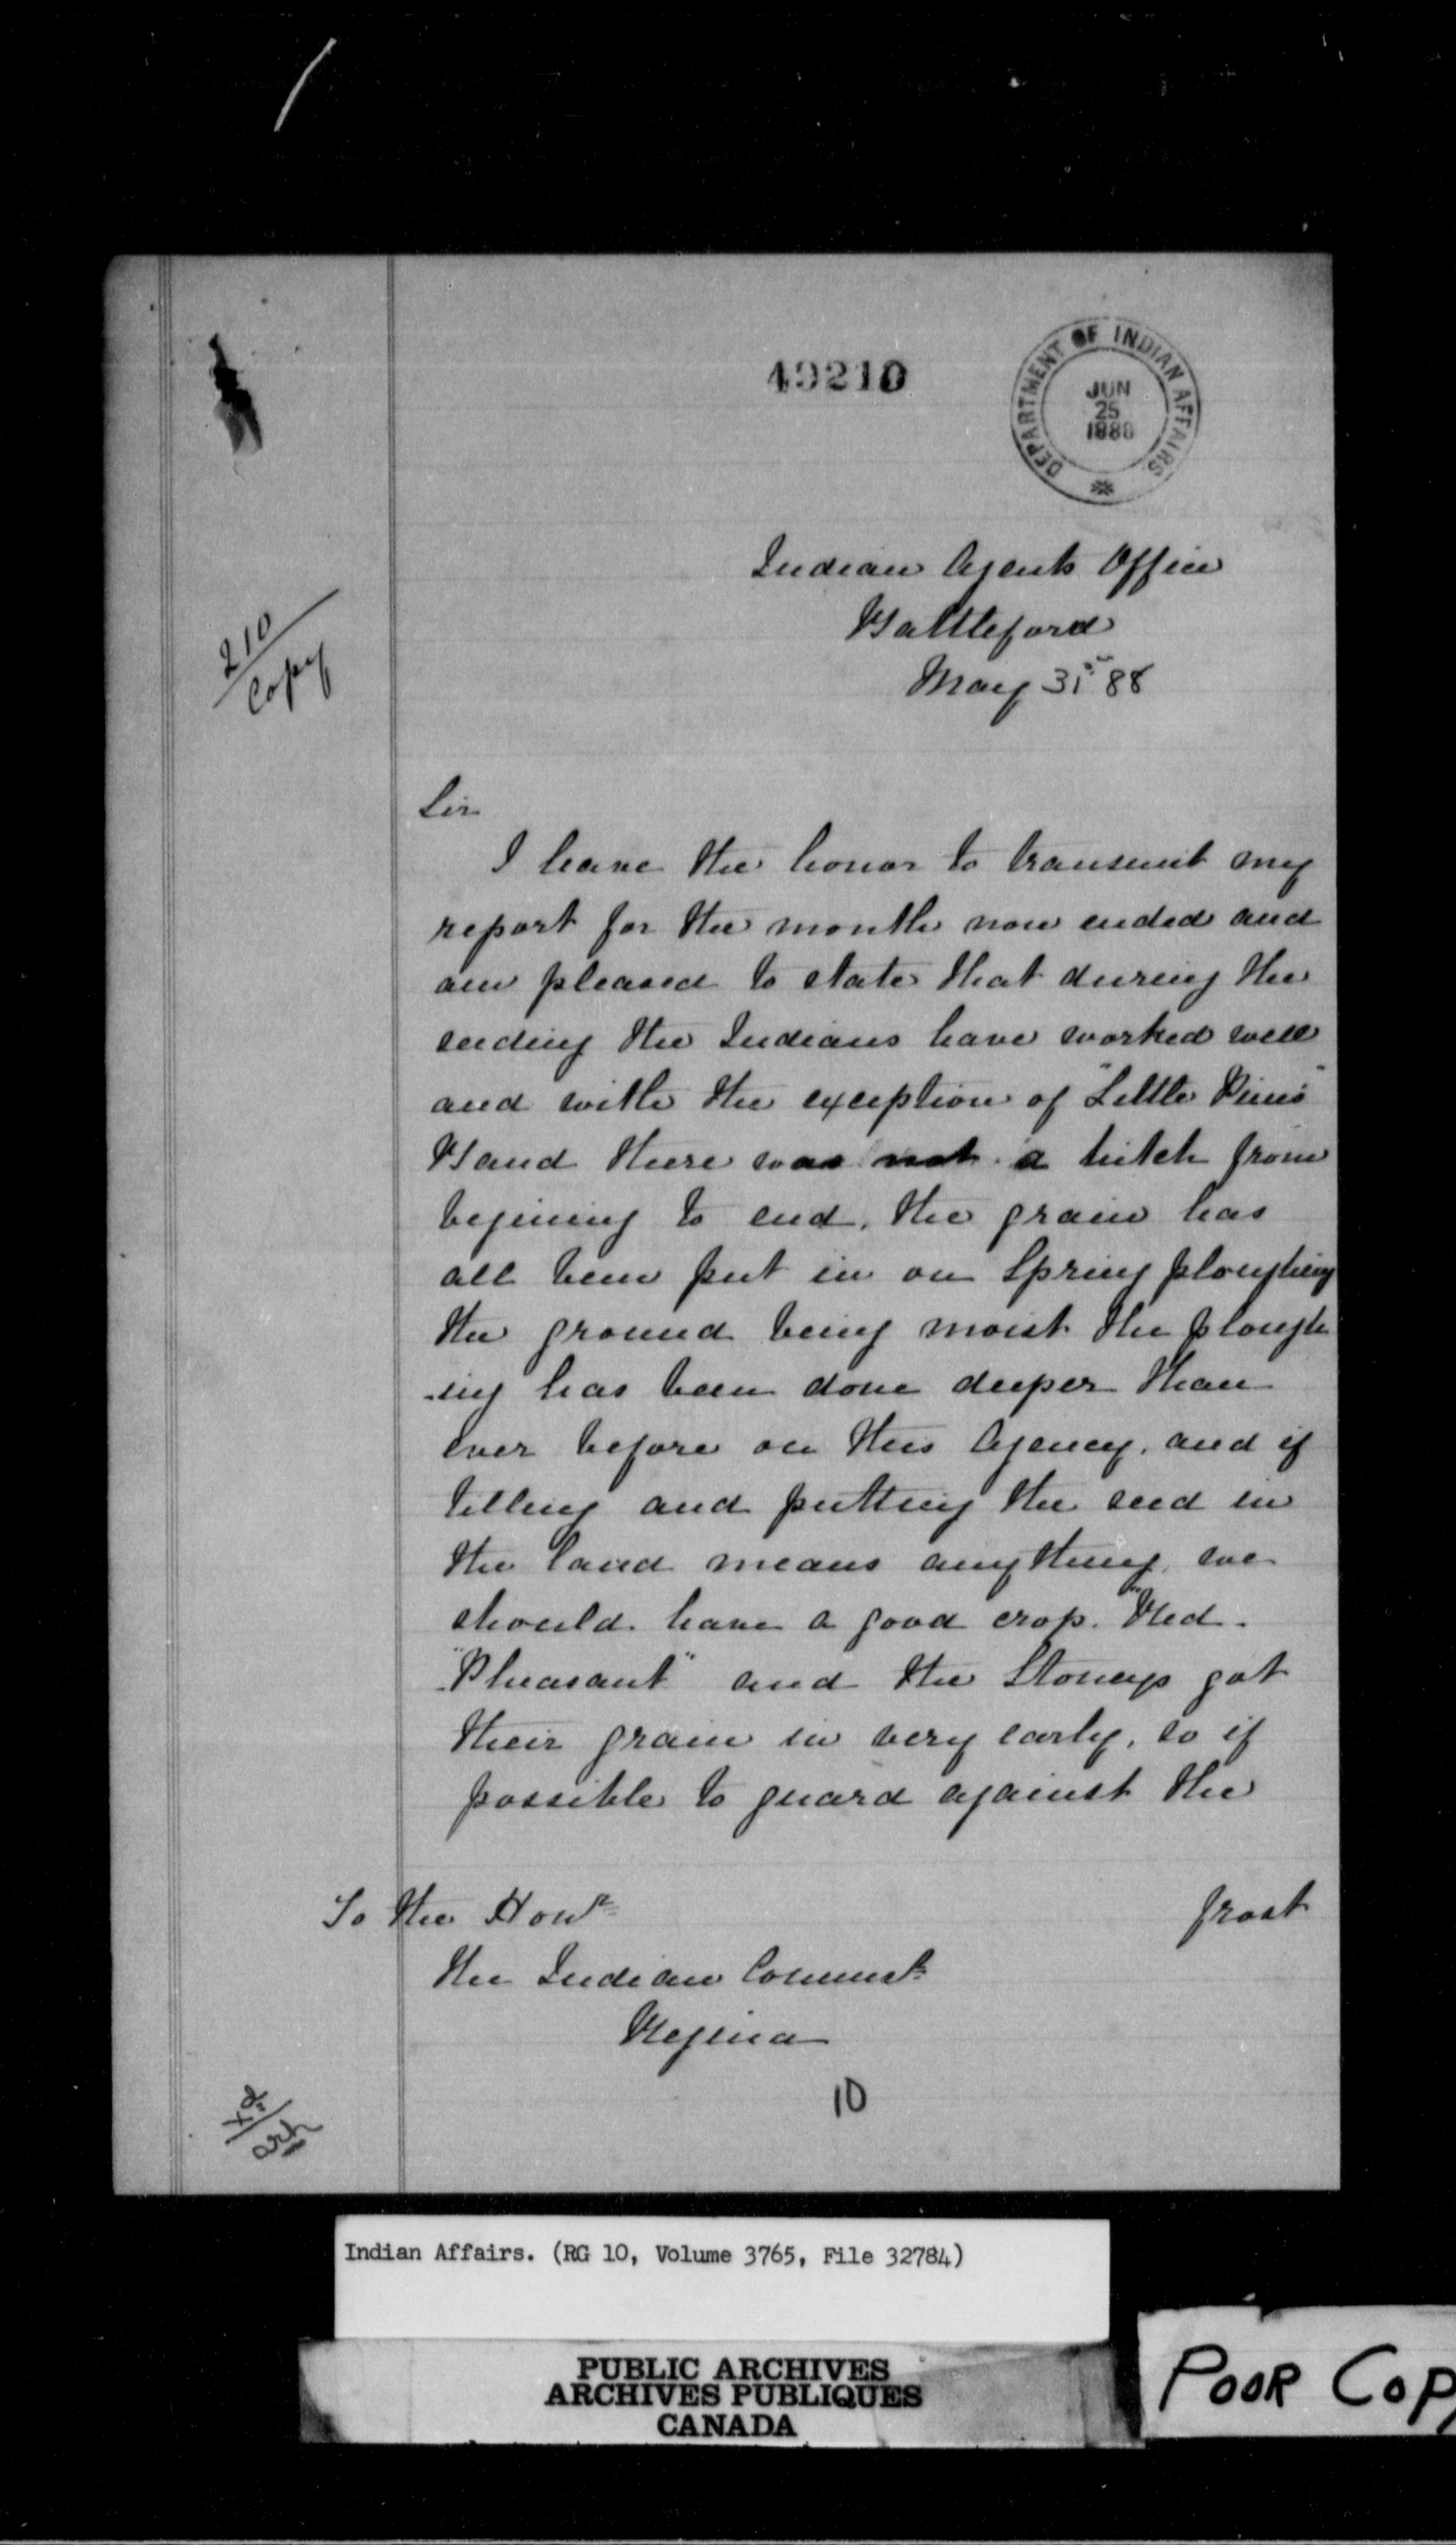 49210
DEPARTMENT OF INDIAN AFFAIRS
JUN
25
1888
Indian Agents Office
Battleford
May 31st 88
210
Copy
Sir
I have the honor to transmit my
report for the month now ended and
am pleased to state that during the
seeding the Indians have worked well
and with the exception of "Little Pines"
Band there was not a hitch from
begining to end, the grain has
all been put in on Spring ploughing
the ground being moist the plough
-ing has been done deeper than
ever before on this Agency, and if
tilling and putting the seed in
the land means anything, we
should have a good crop. "Red
"Pheasant" and the Stoneys got
their grain in very early, so if
possible to guard against the
frost
To the Honble
the Indian Commisr
Regina
10
Indian Affairs. (RG 10, Volume 3765, File 32784)
PUBLIC ARCHIVES
ARCHIVES PUBLIQUES
CANADA
POOR COP